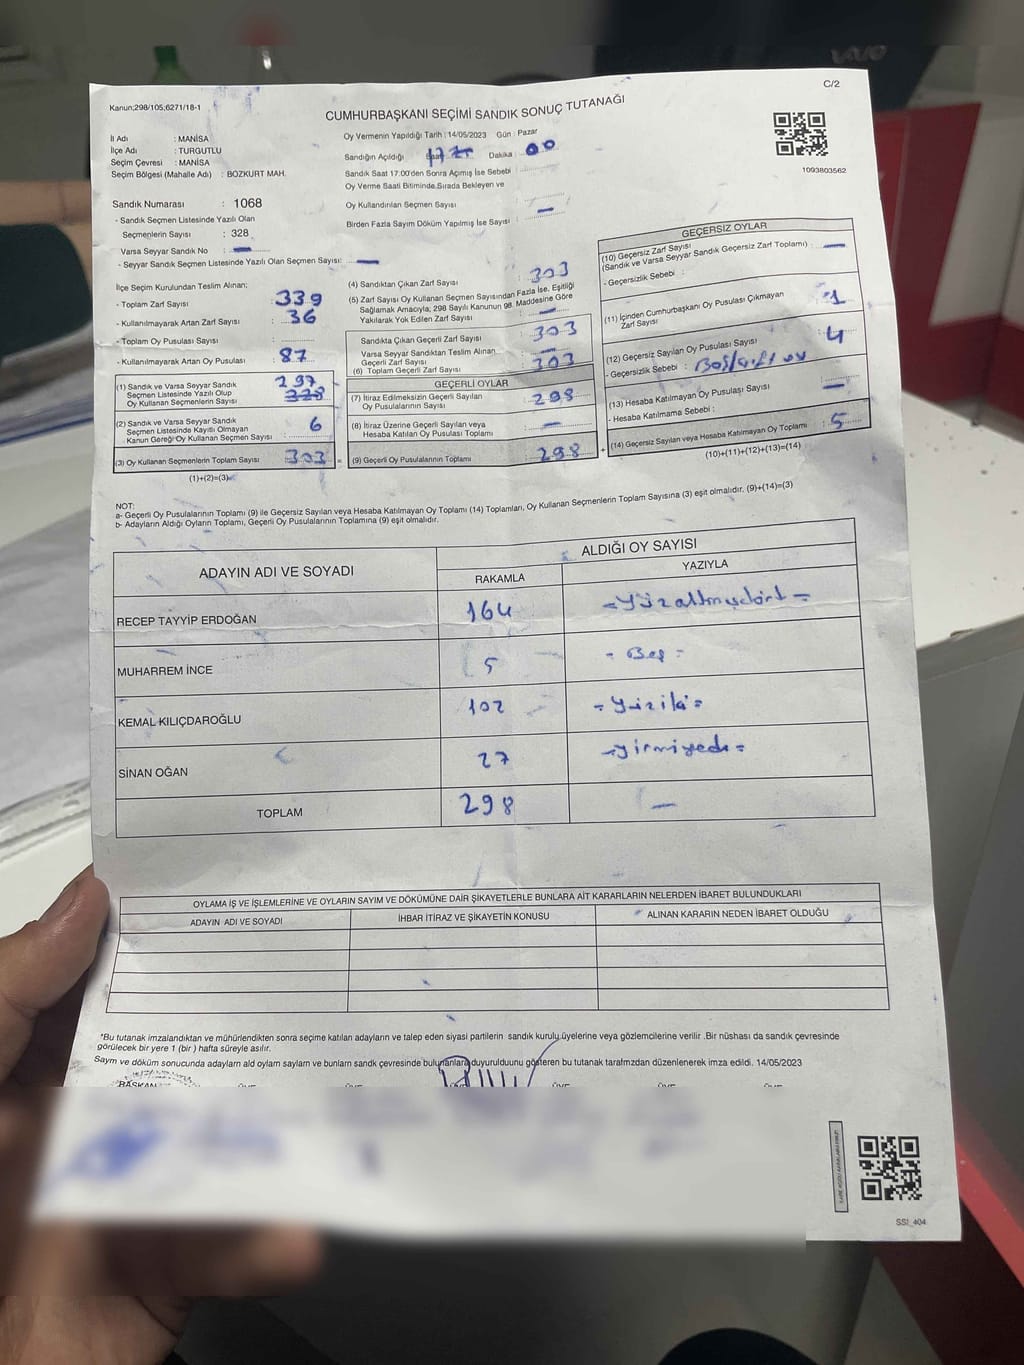 C/2
Kanun;298/105;6271/18-1
CUMHURBAŞKANI SEÇİMİ SANDIK SONUÇ TUTANAĞI
İl Adı : MANİSA
İlçe Adı : TURGUTLU
Seçim Çevresi : MANİSA
Seçim Bölgesi (Mahalle Adı) : BOZKURT MAH.
Oy Vermenin Yapıldığı Tarih : 14/05/2023 Gün : Pazar
Sandığın Açıldığı Saat 17 Dakika : 00
Sandık Saat 17:00'den Sonra Açımış İse Sebebi :
Oy Verme Saati Bitiminde,Sırada Bekleyen ve
Oy Kullandırılan Seçmen Sayısı : —
Birden Fazla Sayım Döküm Yapılmış İse Sayısı : —
1093803562
Sandık Numarası : 1068
- Sandık Seçmen Listesinde Yazılı Olan
Seçmenlerin Sayısı : 328
Varsa Seyyar Sandık No : —
- Seyyar Sandık Seçmen Listesinde Yazılı Olan Seçmen Sayısı: —
İlçe Seçim Kurulundan Teslim Alınan;
- Toplam Zarf Sayısı : 339
- Kullanılmayarak Artan Zarf Sayısı : 36
- Toplam Oy Pusulası Sayısı :
- Kullanılmayarak Artan Oy Pusulası : 87
(1) Sandık ve Varsa Seyyar Sandık
Seçmen Listesinde Yazılı Olup
Oy Kullanan Seçmenlerin Sayısı : 297 328
(2) Sandık ve Varsa Seyyar Sandık
Seçmen Listesinde Kayıtlı Olmayan
Kanun Gereği Oy Kullanan Seçmen Sayısı : 6
(3) Oy Kullanan Seçmenlerin Toplam Sayısı : 303 =
(1)+(2)=(3)
(4) Sandıktan Çıkan Zarf Sayısı : 303
(5) Zarf Sayısı Oy Kullanan Seçmen Sayısından Fazla İse, Eşitliği
Sağlamak Amacıyla; 298 Sayılı Kanunun 98. Maddesine Göre
Yakılarak Yok Edilen Zarf Sayısı : —
Sandıkta Çıkan Geçerli Zarf Sayısı : 303
Varsa Seyyar Sandıktan Teslim Alınan
Geçerli Zarf Sayısı : —
(6) Toplam Geçerli Zarf Sayısı : 303
GEÇERLİ OYLAR
(7) İtiraz Edilmeksizin Geçerli Sayılan
Oy Pusulalarının Sayısı : 298
(8) İtiraz Üzerine Geçerli Sayılan veya
Hesaba Katılan Oy Pusulası Toplamı : —
(9) Geçerli Oy Pusulalarının Toplamı : 298 +
GEÇERSİZ OYLAR
(10) Geçersiz Zarf Sayısı
(Sandık ve Varsa Seyyar Sandık Geçersiz Zarf Toplamı) : —
- Geçersizlik Sebebi :
(11) İçinden Cumhurbaşkanı Oy Pusulası Çıkmayan
Zarf Sayısı : 1
(12) Geçersiz Sayılan Oy Pusulası Sayısı : 4
- Geçersizlik Sebebi : Boş/çift oy
(13) Hesaba Katılmayan Oy Pusulası Sayısı : —
- Hesaba Katılmama Sebebi :
(14) Geçersiz Sayılan veya Hesaba Katılmayan Oy Toplamı : 5
(10)+(11)+(12)+(13)=(14)
NOT:
a- Geçerli Oy Pusulalarının Toplamı (9) ile Geçersiz Sayılan veya Hesaba Katılmayan Oy Toplamı (14) Toplamları, Oy Kullanan Seçmenlerin Toplam Sayısına (3) eşit olmalıdır. (9)+(14)=(3)
b- Adayların Aldığı Oyların Toplamı, Geçerli Oy Pusulalarının Toplamına (9) eşit olmalıdır.
ADAYIN ADI VE SOYADI
ALDIĞI OY SAYISI
RAKAMLA YAZIYLA
RECEP TAYYİP ERDOĞAN 164 =Yüzaltmışdört=
MUHARREM İNCE 5 - Beş =
KEMAL KILIÇDAROĞLU 102 =Yüziki=
SİNAN OĞAN 27 =yirmiyedi=
TOPLAM 298 —
OYLAMA İŞ VE İŞLEMLERİNE VE OYLARIN SAYIM VE DÖKÜMÜNE DAİR ŞİKAYETLERLE BUNLARA AİT KARARLARIN NELERDEN İBARET BULUNDUKLARI
ADAYIN ADI VE SOYADI İHBAR İTİRAZ VE ŞİKAYETİN KONUSU ALINAN KARARIN NEDEN İBARET OLDUĞU
*Bu tutanak imzalandıktan ve mühürlendikten sonra seçime katılan adayların ve talep eden siyasi partilerin sandık kurulu üyelerine veya gözlemcilerine verilir .Bir nüshası da sandık çevresinde
görülecek bir yere 1 (bir ) hafta süreyle asılır.
Sayım ve döküm sonucunda adayların aldı oyların sayların ve bunların sandk çevresinde bulunanlara duyurulduunu gösteren bu tutanak tarafmzdan düzenlenerek imza edildi. 14/05/2023
BAŞKAN ÜYE ÜYE ÜYE ÜYE ÜYE
SSI_404